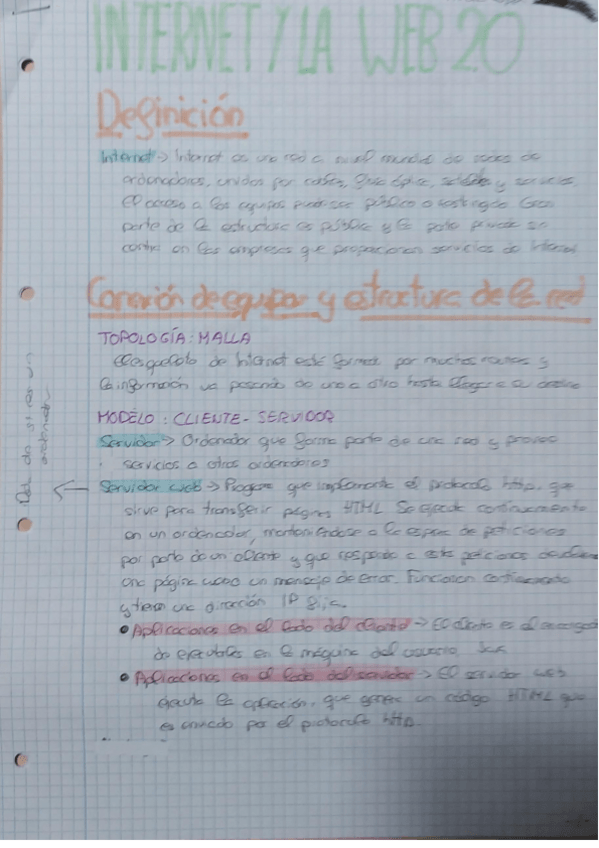 INTERNET Y LA WEB 2.0
Definición
Internet → Internet es una red a nivel mundial de redes de
ordenadores, unidos por cables, fibra óptica, satélites y servicios.
El acceso a los equipos puede ser público o restringido. Gran
parte de la estructura es pública y la parte privada se
centra en las empresas que proporcionan servicios de Internet
Conexión de equipos y estructura de la red
TOPOLOGÍA: MALLA
El esqueleto de Internet está formado por muchos routers y
la información va pasando de uno a otro hasta llegar a su destino
MODELO: CLIENTE-SERVIDOR
Servidor → Ordenador que forma parte de una red y provee
servicios a otros ordenadores
Servidor web → Programa que implementa el protocolo http, que
sirve para transferir páginas HTML. Se ejecuta continuamente
en un ordenador, manteniéndose a la espera de peticiones
por parte de un cliente y que responde a estas peticiones
una página web o un mensaje de error. Funcionan continuamente
y tienen una dirección IP fija.
• Aplicaciones en el lado del cliente → El cliente es el encargado
de ejecutarlas en la máquina del usuario.
• Aplicaciones en el lado del servidor → El servidor web
ejecuta la aplicación, que genera un código HTML que
es enviado por el protocolo http.